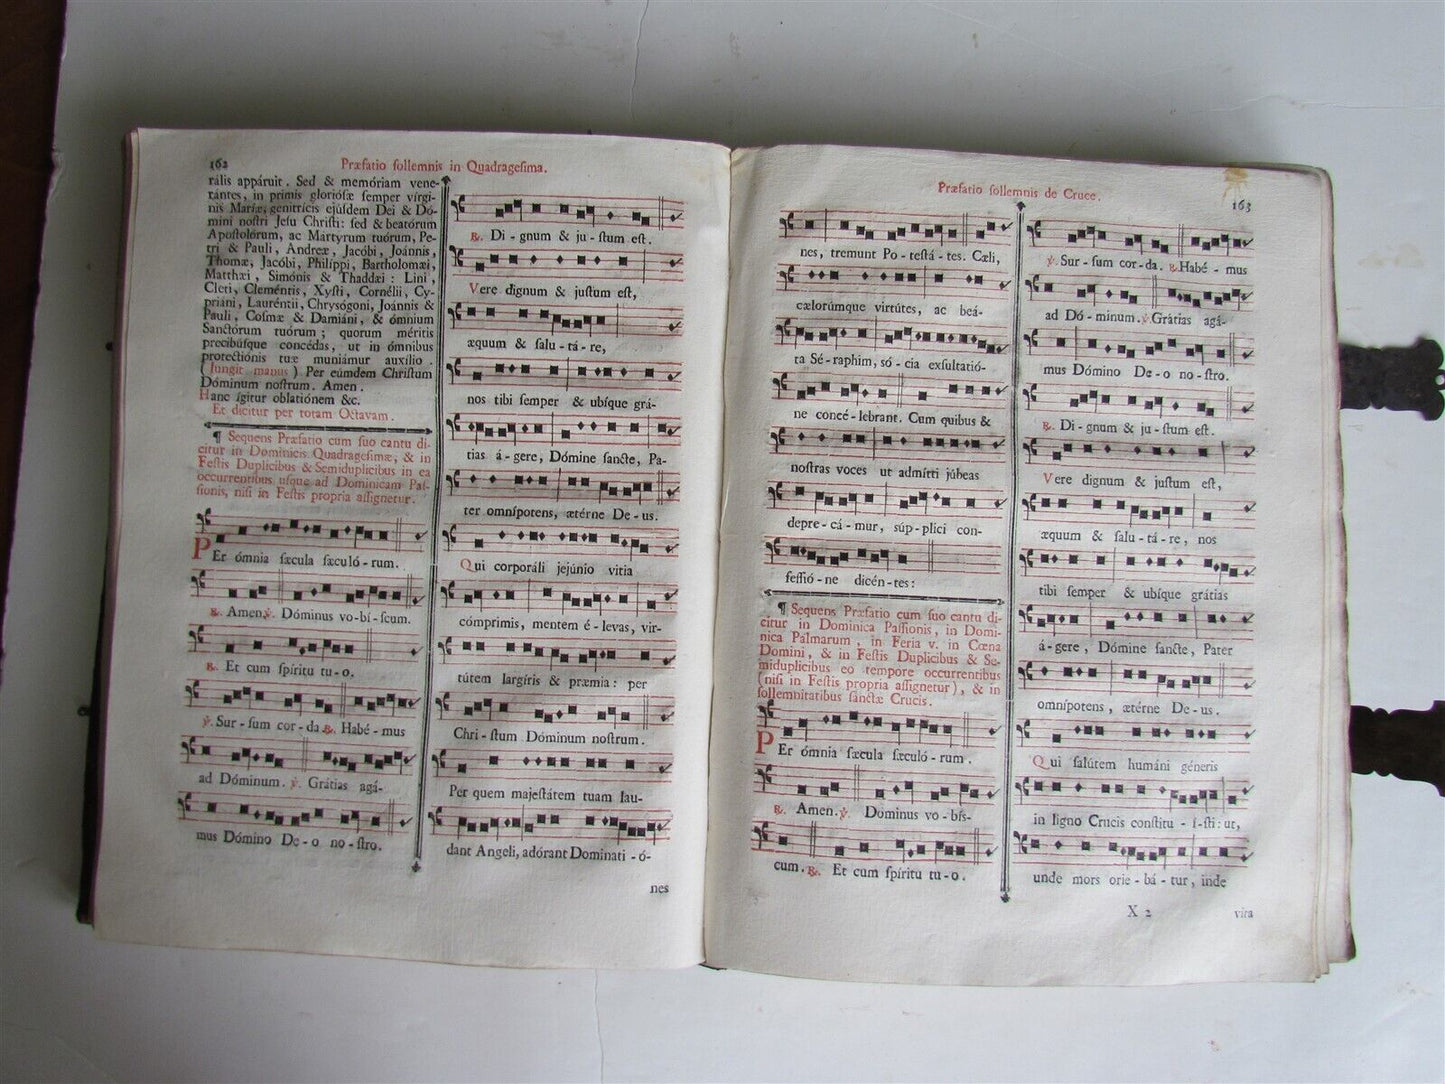 162
Præfatio ſollemnis in Quadrageſima.
rális appáruit. Sed & memóriam vene-
rántes, in primis glorióſæ ſemper vírgi-
nis Maríæ, genitrícis ejúſdem Dei & Dó-
mini noſtri Jeſu Chriſti: ſed & beatórum
Apoſtolórum, ac Mártyrum tuórum, Pe-
tri & Pauli, Andréæ, Jacóbi, Joánnis,
Thomæ, Jacóbi, Philíppi, Bartholomǽi,
Matthǽi, Simónis & Thaddǽi: Lini,
Cleti, Cleméntis, Xyſti, Cornélii, Cy-
priáni, Lauréntii, Chryſógoni, Joánnis &
Pauli, Coſmæ & Damiáni, & ómnium
Sanctórum tuórum; quorum méritis
precibúſque concédas, ut in ómnibus
protectiónis tuæ muniámur auxílio.
(Jungit manus) Per eúmdem Chriſtum
Dóminum noſtrum. Amen.
Hanc ígitur oblatiónem &c.
Et dicitur per totam Octavam.
¶ Sequens Præfatio cum ſuo cantu di-
citur in Dominicis Quadrageſimæ, & in
Feſtis Duplicibus & Semiduplicibus in ea
occurrentibus uſque ad Dominicam Paſ-
ſionis, niſi in Feſtis propria aſſignetur.
PEr ómnia ſæcula ſæculó-rum.
℟. Amen. ℣. Dóminus vo-bí-ſcum.
℟. Et cum ſpíritu tu-o.
℣. Sur-ſum cor-da. ℟. Habé-mus
ad Dóminum. ℣. Grátias agá-
mus Dómino De-o no-ſtro.
℟. Di-gnum & ju-ſtum eſt.
Vere dignum & juſtum eſt,
æquum & ſalu-tá-re,
nos tibi ſemper & ubíque grá-
tias á-gere, Dómine ſancte, Pa-
ter omnípotens, ætérne De-us.
Qui corporáli jejúnio vitia
cómprimis, mentem é-levas, vir-
tútem largíris & præmia: per
Chri-ſtum Dóminum noſtrum.
Per quem majeſtátem tuam lau-
dant Angeli, adórant Dominati-ó-
nes
Præfatio ſollemnis de Cruce.
163
nes, tremunt Po-teſtá-tes. Cæli,
cælorúmque virtútes, ac beá-
ta Sé-raphim, só-cia exſultatió-
ne concé-lebrant. Cum quibus &
noſtras voces ut admítti júbeas
depre-cá-mur, súp-plici con-
feſſió-ne dicén-tes:
¶ Sequens Præfatio cum ſuo cantu di-
citur in Dominica Paſſionis, in Domi-
nica Palmarum, in Feria v. in Cœna
Domini, & in Feſtis Duplicibus & Se-
miduplicibus eo tempore occurrentibus
(niſi in Feſtis propria aſſignetur), & in
ſollemnitatibus ſanctæ Crucis.
PEr ómnia ſæcula ſæculó-rum.
℟. Amen. ℣. Dóminus vo-bíſ-
cum. ℟. Et cum ſpíritu tu-o.
℣. Sur-ſum cor-da. ℟. Habé-mus
ad Dó-minum. ℣. Grátias agá-
mus Dómino De-o no-ſtro.
℟. Di-gnum & ju-ſtum eſt.
Vere dignum & juſtum eſt,
æquum & ſalu-tá-re, nos
tibi ſemper & ubíque grátias
á-gere, Dómine ſancte, Pater
omnípotens, ætérne De-us.
Qui ſalútem humáni géneris
in ligno Crucis conſtitu-í-ſti: ut,
unde mors orie-bá-tur, inde
X 2
vita